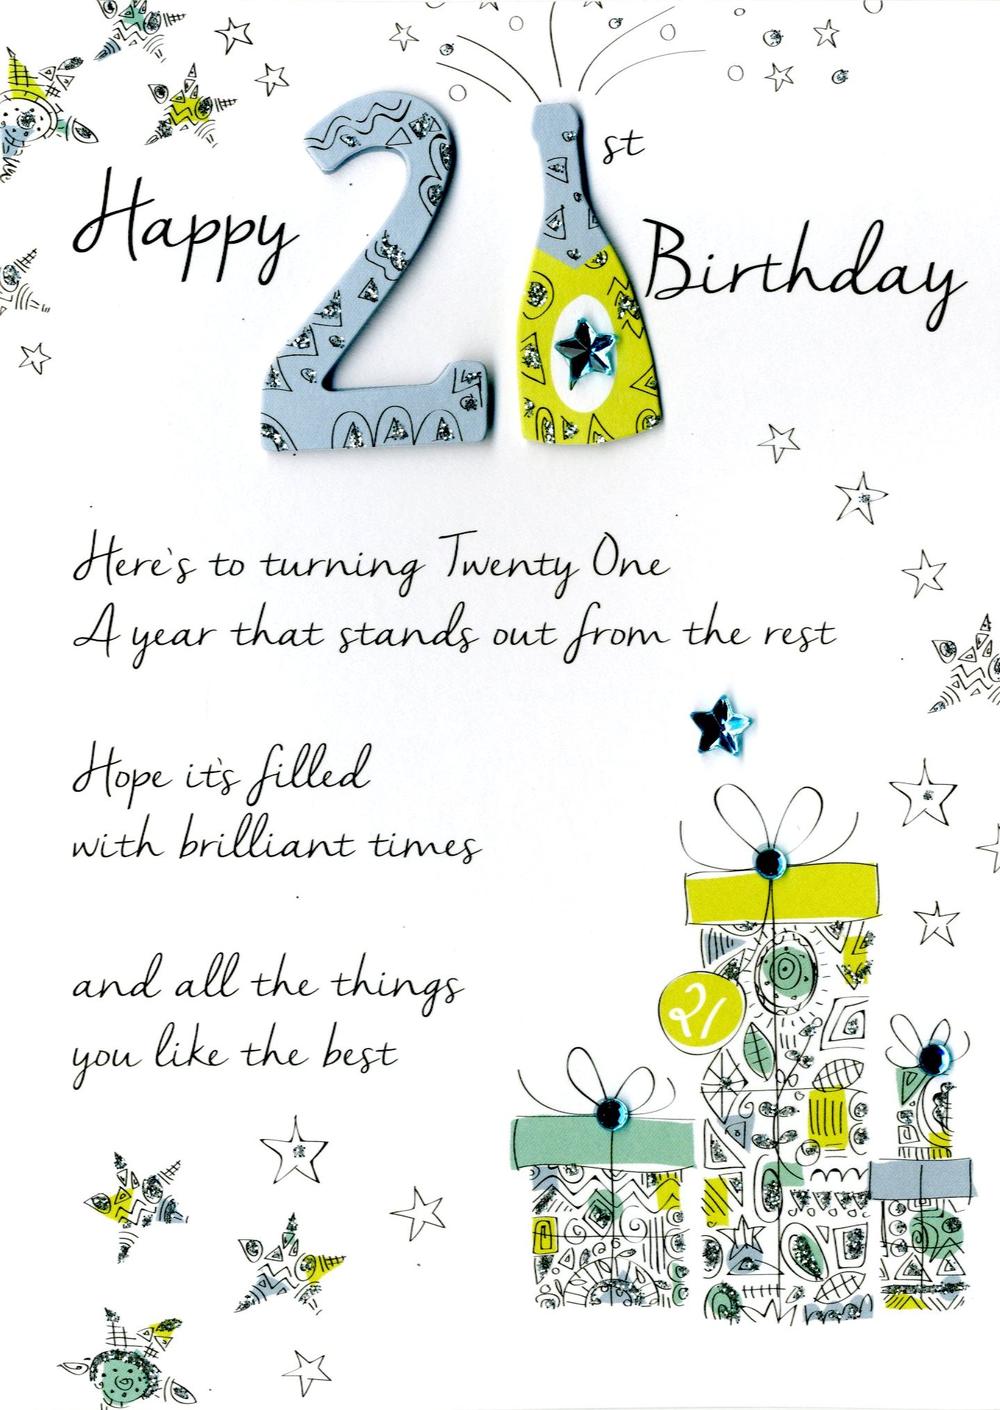 Happy 21st Birthday
Here's to turning Twenty One
A year that stands out from the rest
Hope it's filled
with brilliant times
and all the things
you like the best
21